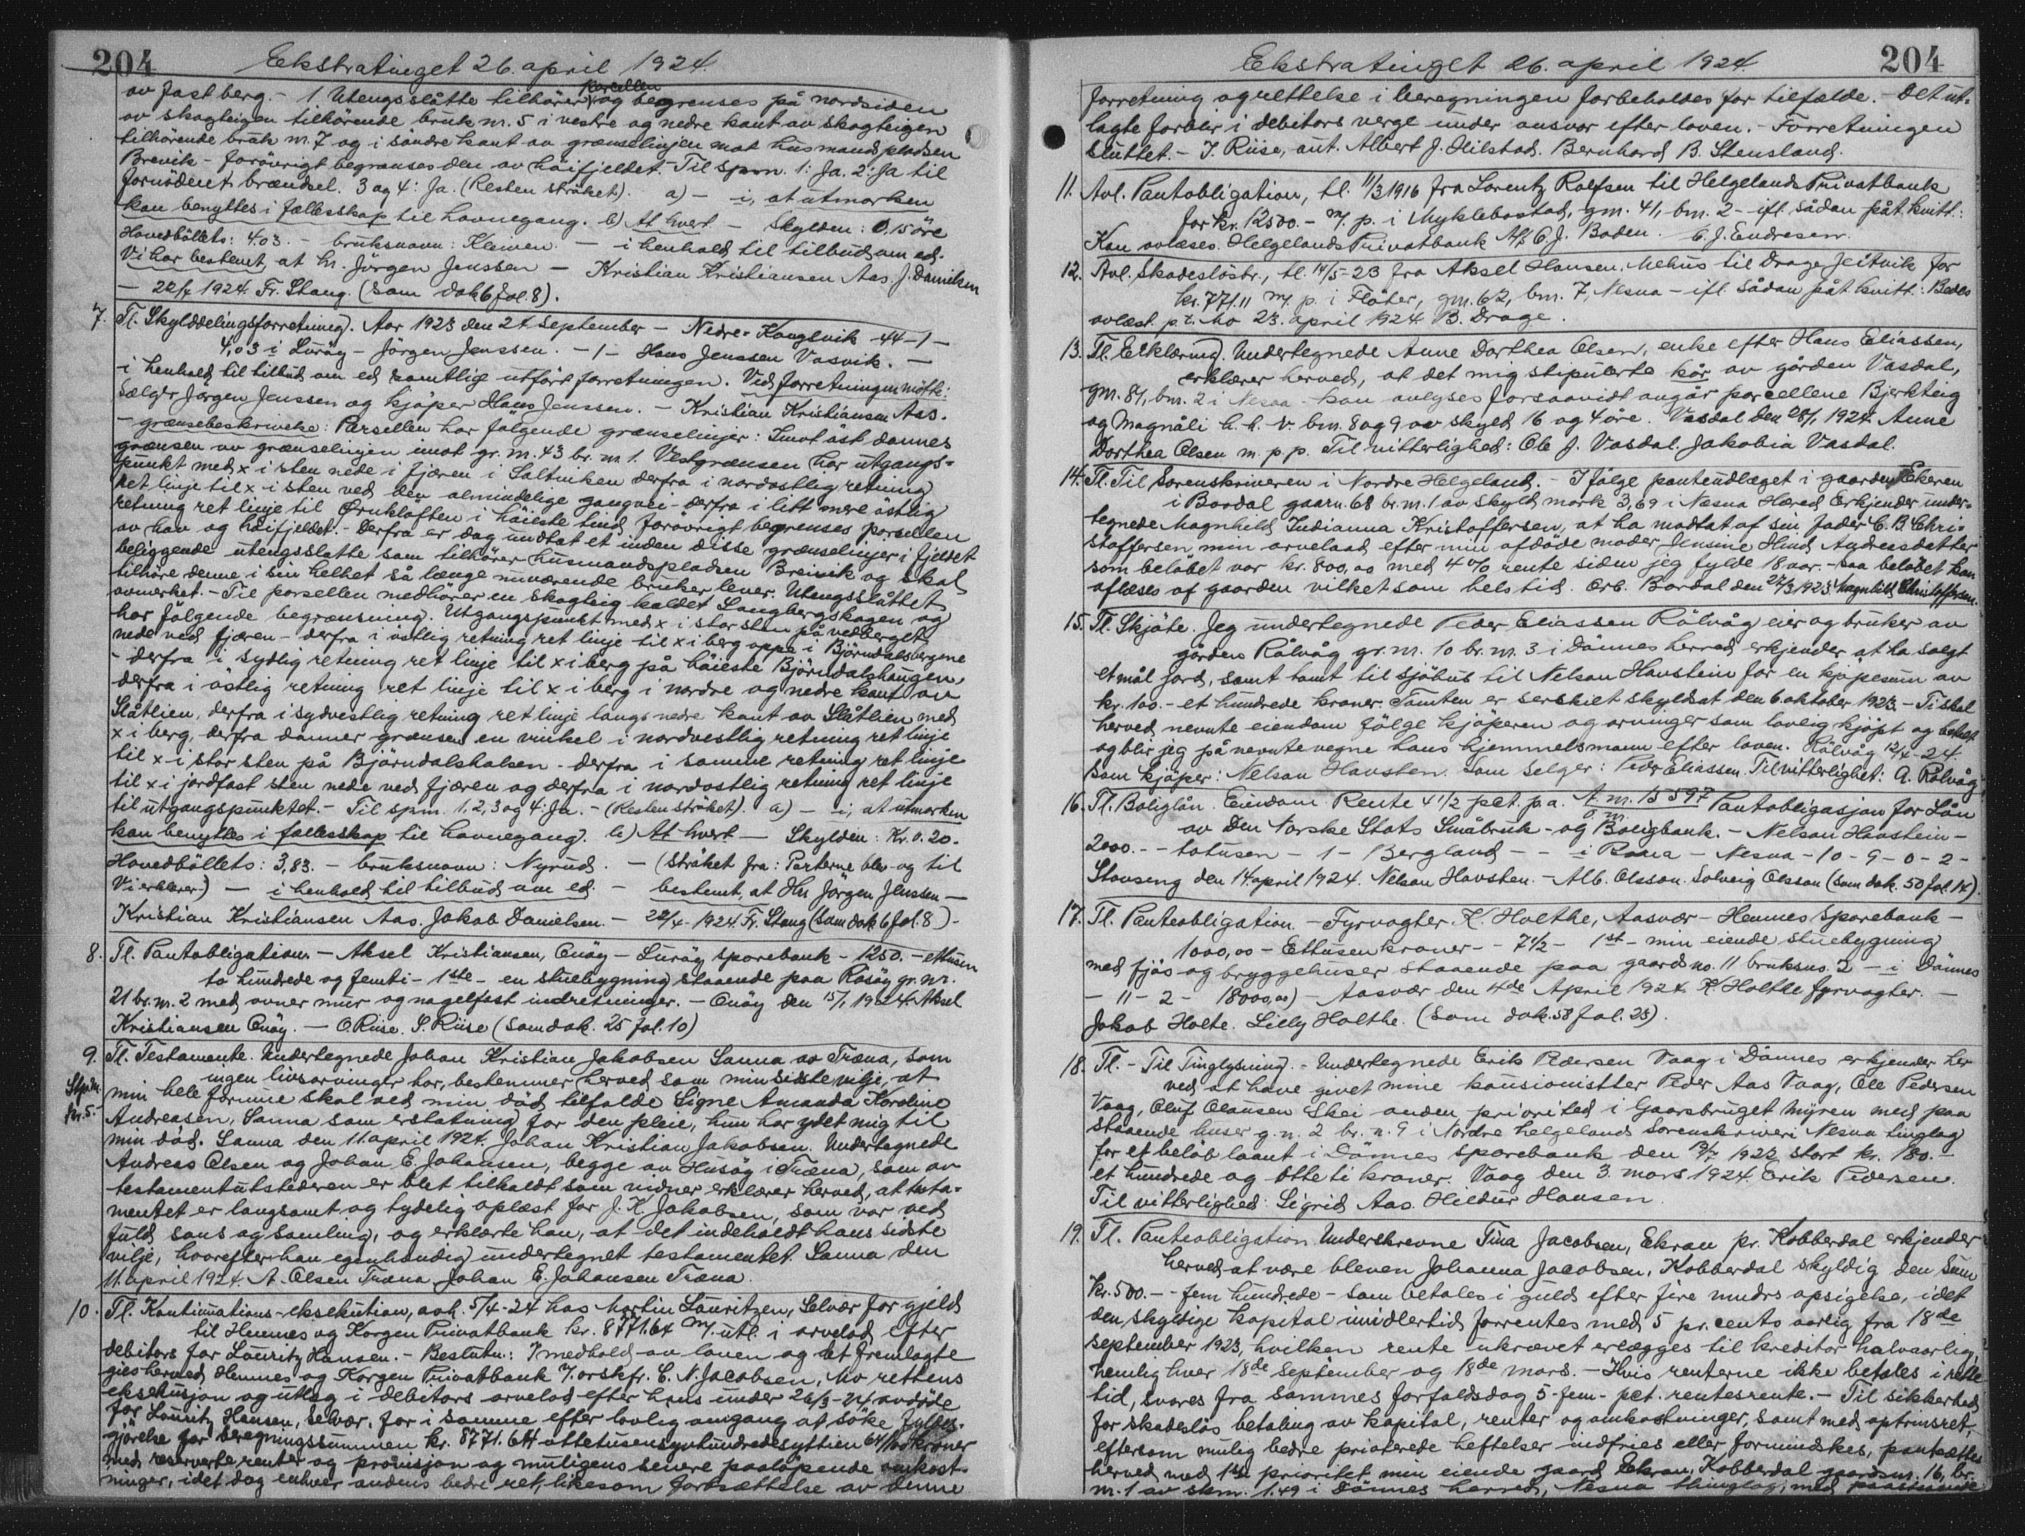 204
Ekstratinget 26. april 1924.
av fast berg. - 1 Utengsslåtte tilhører Parcellen og begrenses på nordsiden
av skogteigen tilhørende bruk nr. 5 i vestre og nedre kant av skogteigen
tilhörende bruk nr. 7 og i söndre kant av grænselinjen mot husmandspladsen
Breivik - foröurigt begrænses den av höifjeldet. Til spm. 1: Ja. 2: Ja til
fornödent brændsel. 3 og 4: Ja. (Resten ströket). a) - i, at utmarken
kan benyttes i fællesskap til havnegang. b) At hvert - Skylden: 0.15 öre
Hovedböllets: 4.03. - bruksnavn: Kleiven. - i henhold til tilbud om ed.
Vi har bestemt, at hr. Jörgen Jenssen - Kristian Kristiansen Aas. J. Danielsen
- 22/4 1924 Fr. Stang. (Som dok 6 fol. 8).
7. Tl. Skylddelingsforretning. Aar 1923 den 24 September - Nedre-Konglvik - 44 - 1 -
4,03 i Luröy - Jörgen Jenssen. - 1 - Hans Jenssen Vasvik. -
i henhold til tilbud om ed samtlige utført forretningen. Ved forretningen mötte:
Sælger Jørgen Jenssen og kjöper Hans Jenssen. - Kristian Kristiansen Aas.
- grænsebeskrivelse: Parsellen har følgende grænselinjer: Imot öst dannes
grænsen av grænselinjen imot gr. nr. 43 br. nr 1. Vestgrænsen har utgangs-
punkt med x i sten nede i fjæren i Saltviken derfra i nordostlig retning
ret linje til x i sten ved den almindelige gangvei - derfra i litt mere östlig
retning ret linje til Ørnkloften i höieste tind forövrigt begrenses parsellen
av hav og höifjeldet. - Derfra er dog undtat et inden disse grænselinjer i fjeldet
beliggende utengsslåtte som tilhører husmandspladsen Breivik og skal
tilhøre denne i sin helhet så længe nuværende bruker lever. Utengsslåttet
avmerket. - Til parsellen medhører en skogteig kaldet Langbergskogen og
har følgende begrænsning. Utgangspunkt med x i stor sten på vedberget
nede ved fjæren - derfra i östlig retning ret linje til x i berg oppe i Björndalsbergene
- derfra i sydlig retning ret linje til x i berg på höieste Björndalshaugen,
derfra i östlig retning ret linje til x i berg i nordre og nedre kant av
Slåtlien, derfra i sydvestlig retning ret linje langs nedre kant av Slåtlien med
x i berg, derfra danner grænsen en vinkel i nordvestlig retning ret linje
til x i stor sten på Björndalshalsen - derfra i samme retning ret linje
til x i jordfast sten nede ved fjæren og derfra i nordostlig retning ret linje
til utgangspunktet. - Til spm. 1, 2, 3 og 4: Ja. - (Resten ströket). a) - i, at utmarken
kan benyttes i fællesskap til havnegang. b) At hvert - Skylden: Kr. 0.20.
Hovedböllets: 3,83. - bruksnavn: Nyrud. - (Ströket fra: Parterne blev og til
Vi erklærer) - i henhold til tilbud om ed - bestemt, at Hr. Jørgen Jenssen -
Kristian Kristiansen Aas. Jakob Danielsen. - 22/4 - 1924. Fr. Stang (som dok 6 fol. 8) -
8. Tl. Pantobligation. - Aksel Kristiansen, Onöy - Luröy sparebank - 1250. - ettusen
to hundrede og femti - 1ste - en stuebygning staaende paa Rösöy gr. nr.
21 br. nr. 2 med ovner mur og nagelfast indretninger. - Onöy den 15/1 1924. Aksel
Kristiansen Onöy. - O. Riise. S. Riise (som dok. 25 fol. 10)
9. Tl. Testamente. Undertegnede Johan Kristian Jakobsen Sanna av Træna, som
ingen livsarvinger har, bestemmer herved som min sidste vilje, at
Stpm. kr. 5.-
min hele formue skal ved min död tilfalde Signe Amanda Karoline
Andreasen, Sanna som erstatning for den pleie, hun har ydet mig til
min död. Sanna den 11. april 1924. Johan Kristian Jakobsen. Undertegnede
Andreas Olsen og Johan E. Johansen, begge av Husöy i Træna, som av
testamentutstederen er blet tilkaldt som vidner erklærer herved, at testa-
mentet er langsomt og tydelig oplæst for J. K. Jakobsen, som var ved
fuld sans og samling, og erklærte han, at det indeholdt hans sidste
vilje, hvorefter han egenhændig undertegnet testamentet. Sanna den
11. april 1924. A. Olsen Træna. Johan E. Johansen Træna.
10. Tl. Kontinuations-eksekution, avh. 5/4-24 hos Martin Lauritzen, Selvær for gjeld
til Hemnes og Korgen Privatbank kr. 8771.64 m/. utl. i arvelod efter
debitors far Lauritz Hansen. - Beslutn.: I medhold av loven og det fremlagte
gies herved Hemnes og Korgen Privatbank v/. orskfr. C. N. Jacobsen, Mo rettens
eksekusjon og utlæg i debitors arvelod efter hans under 26/3-24 avdöde
far Lauritz Hansen, Selvær, for i samme efter lovlig omgang at söke fyldest-
gjörelse for beregningssummen kr. 8771.64 ottetusensyvhundredesyttien 64/100 kroner
med reserverte renter og provisjon og muligens senere paalöpende omkost-
ninger, idet dog enhver andens bedre ret, likesom fortsættelse av denne
204
Ekstratinget 26. april 1924.
forretning og rettelse i beregningen forbeholdes for tilfælde. - Det ut-
lagte forblir i debitors verge under ansvar efter loven. - Forretningen
sluttet. - J. Riise, aut. Albert J. Hilstad. Bernhard B. Stensland.
11. Avl. Pantobligation, tl. 11/3 1916 fra Lorentz Rolfsen til Helgelands Privatbank
for kr. 12500 - m/ p. i Myklebostad, gm. 41, bm. 2 - ifl. sådan påt. kvitt.:
Kan avlæses. Helgelands Privatbank A/S C. J. Boden. C. J. Endresen
12. Avl. Skadeslösbr., tl. 14/5-23 fra Aksel Hansen. Mehus til Drage Jeitvik for
kr. 771.11 m/ p. i Flöter, gm. 62, bm. 7, Nesna - ifl. sådan påt. kvitt.: Bedes
avlæst p. t. Mo 23. april 1924 B. Drage.
13. Tl. Erklæring. Undertegnede Anne Dorthea Olsen, enke efter Hans Eliassen,
erklærer herved, at det mig stipulerte kår av gården Vasdal,
gm. 81, bm. 2 i Nesna kan avlyses forsaavidt angår parcellene Bjerkteig
og Magnåli h. h. v. bm. 8 og 9 av skyld 16 og 4 öre. Vasdal den 28/1 1924. Anne
Dorthea Olsen m. p. p. Til vitterlighed: Ole J. Vasdal. Jakobia Vasdal.
14. Tl. Til Sorenskriveren i Nordre Helgeland. - I følge panteudlæget i gaarden Ekeren
i Boodal gaarn. 68 br. nr. 1 av skyld mark 3,69 i Nesna Hæred Erkjender under-
tegnede Magnhild Indianna Kristoffersen, at ha modtat af sin fader C. B. Chri-
stoffersen min arvelaad efter min afdöde moder Jensine Hind Andreasdatter
som belöbet var kr. 800,00 med 4 % rente siden jeg fylde 18 aar. - saa belöbet kan
aflæses af gaarden vilketsom hels tid. Ørb. Bardal den 22/3 1923. Magnhild Christoffersen.
15. Tl. Skjöte. Jeg undertegnede Peder Eliassen Rölvåg eier og bruker av
gården Rölvåg gr. nr. 10 br. nr. 3 i Dönnes herred erkjender at ha solgt
et mål jord, samt tomt til sjöhus til Nelson Havstein for en kjöpesum av
kr. 100. - et hundrede kroner. Tomten er serskilt skyldsat den 6. oktober 1923. - Ti skal
herved nevnte eiendom följe kjöperen og arvinger som lovlig kjöpt og betalt
og blir jeg på nevnte vegne hans hjemmelsmann efter loven. Rölvåg 12/4-24.
Som kjöper: Nelson Havsten. Som selger: Peder Eliassen. Til vitterlighet: A. Rölvåg
16. Tl. Boliglån. Eiendom. Rente 4 1/2 pct. p. a. A. m. 15597 Pantobligasjon for Lån
av Den Norske Stats Småbruk - og Boligbank. - Nelson Havstein -
2000. - - totusen - 1 - Bergland - - i Rana - Nesna - 10 - 9 - 0 - 2 -
Stavseng den 14 april 1924. Nelson Havsten. - Alb. Olsson. Solveig Olsson (som dok. 50 fol. 16).
17. Tl. Panteobligation - Fyrvogter K. Holthe, Aasvær - Hemnes Sparebank -
1000,00 - Ettusen kroner - - 7 1/2 - 1st - min eiende stuebygning
med fjös og bryggehuser staaende paa gaards no. 11 bruksno. 2 - i Dönnes
- 11 - 2 - 18000,00) - Aasvær den 4de April 1924. K. Holthe fyrvogter. -
Jakob Holte. Lilly Holthe. (Som dok. 58 fol. 23).
18. Tl. - Til Tinglysning. - Undertegnede Erik Pedersen Vaag i Dönnes erkjender her
ved at have givet mine kausionistter Peder Aas Vaag, Ole Pedersen
Vaag, Oluf Olausen Skei anden prioritet i Gaarsbruget Myren med paa
staaende huser g. n. 2 br. n. 9 i Nordre Helgelands Sorenskriveri Nesna tinglag
for et belöb laant i Dönnes Sparebank den 19/7 1923 stort kr. 180. -
et hundrede og otte ti kroner. Vaag den 3. mars 1924. Erik Pedersen.
Til vitterlighed: Sigrid Aas. Hildur Hansen.
19. Tl. Panteobligation. Underskrevne Tina Jacobsen, Ekran pr. Kobberdal erkjender
herved at være bleven Johanna Jacobsen, Kobberdal skyldig den Sum
Kr. 500. - - fem hundrede - som betales i guld efter fire mndrs opsigelse, idet
den skyldige kapital imidlertid forrentes med 5 pr. cento aarlig fra 18de
september 1923, hvilken rente ukrævet erlægges til kreditor halvaarlig,
nemlig hver 18de September og 18de mars. - Hvis renterne ikke betales i rette
tid, svares fra sammes forfaldsdag 5 - fem - pct. rentesrente. - Til sikkerhed
for skadeslös betaling av kapital, renter og omkostninger, samt med optrinsret,
eftersom mulig bedre prioterede heftelser indfries eller formindskes, pantsættes
herved med 1ste prioritet min eiende gaard Ekran, Kobberdal gaardsnr. 16, br.
nr. 1 av skm. 1.49 i Dönnes herred, Nesna thinglag, med paastaaende